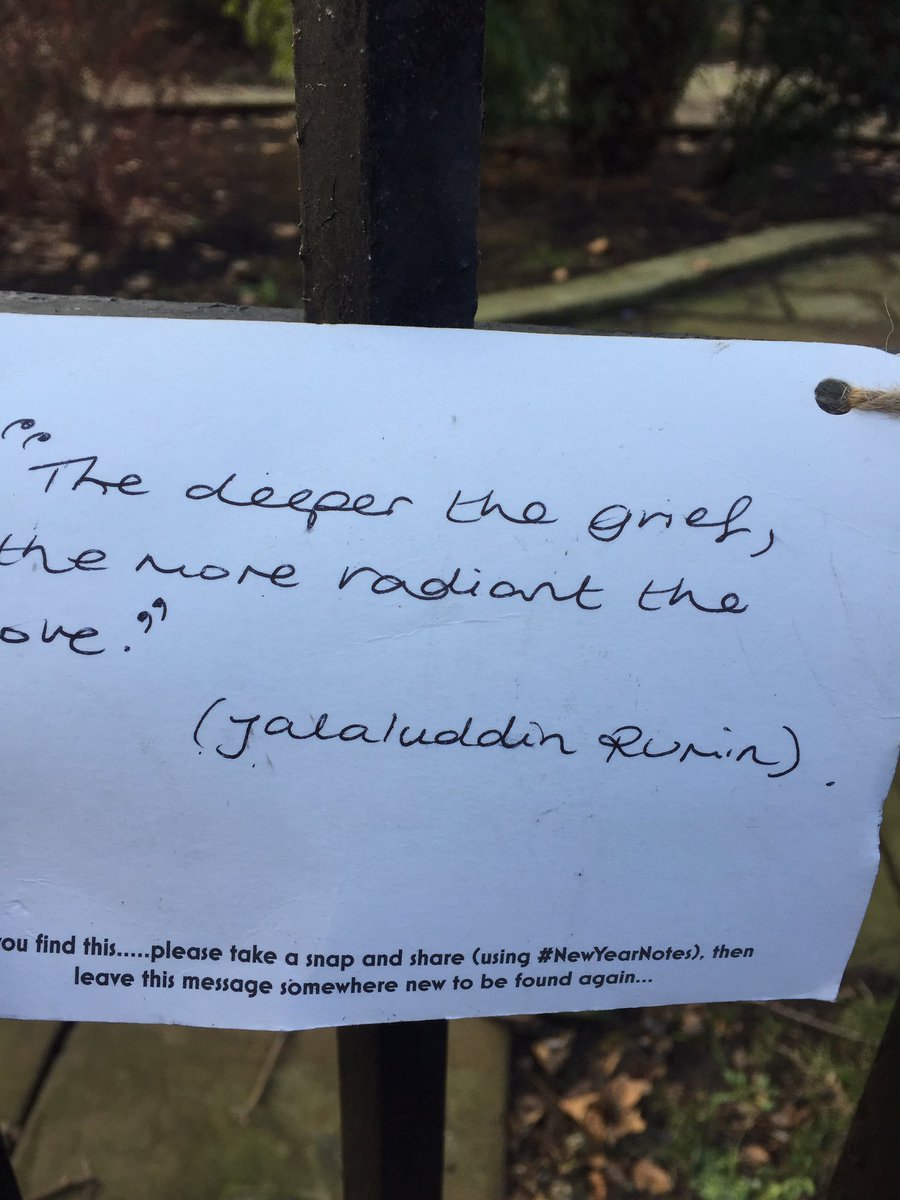 "The deeper the grief,
the more radiant the
ove."
(Jalaluddin Rumin).
you find this.....please take a snap and share (using #NewYearNotes), then
leave this message somewhere new to be found again...